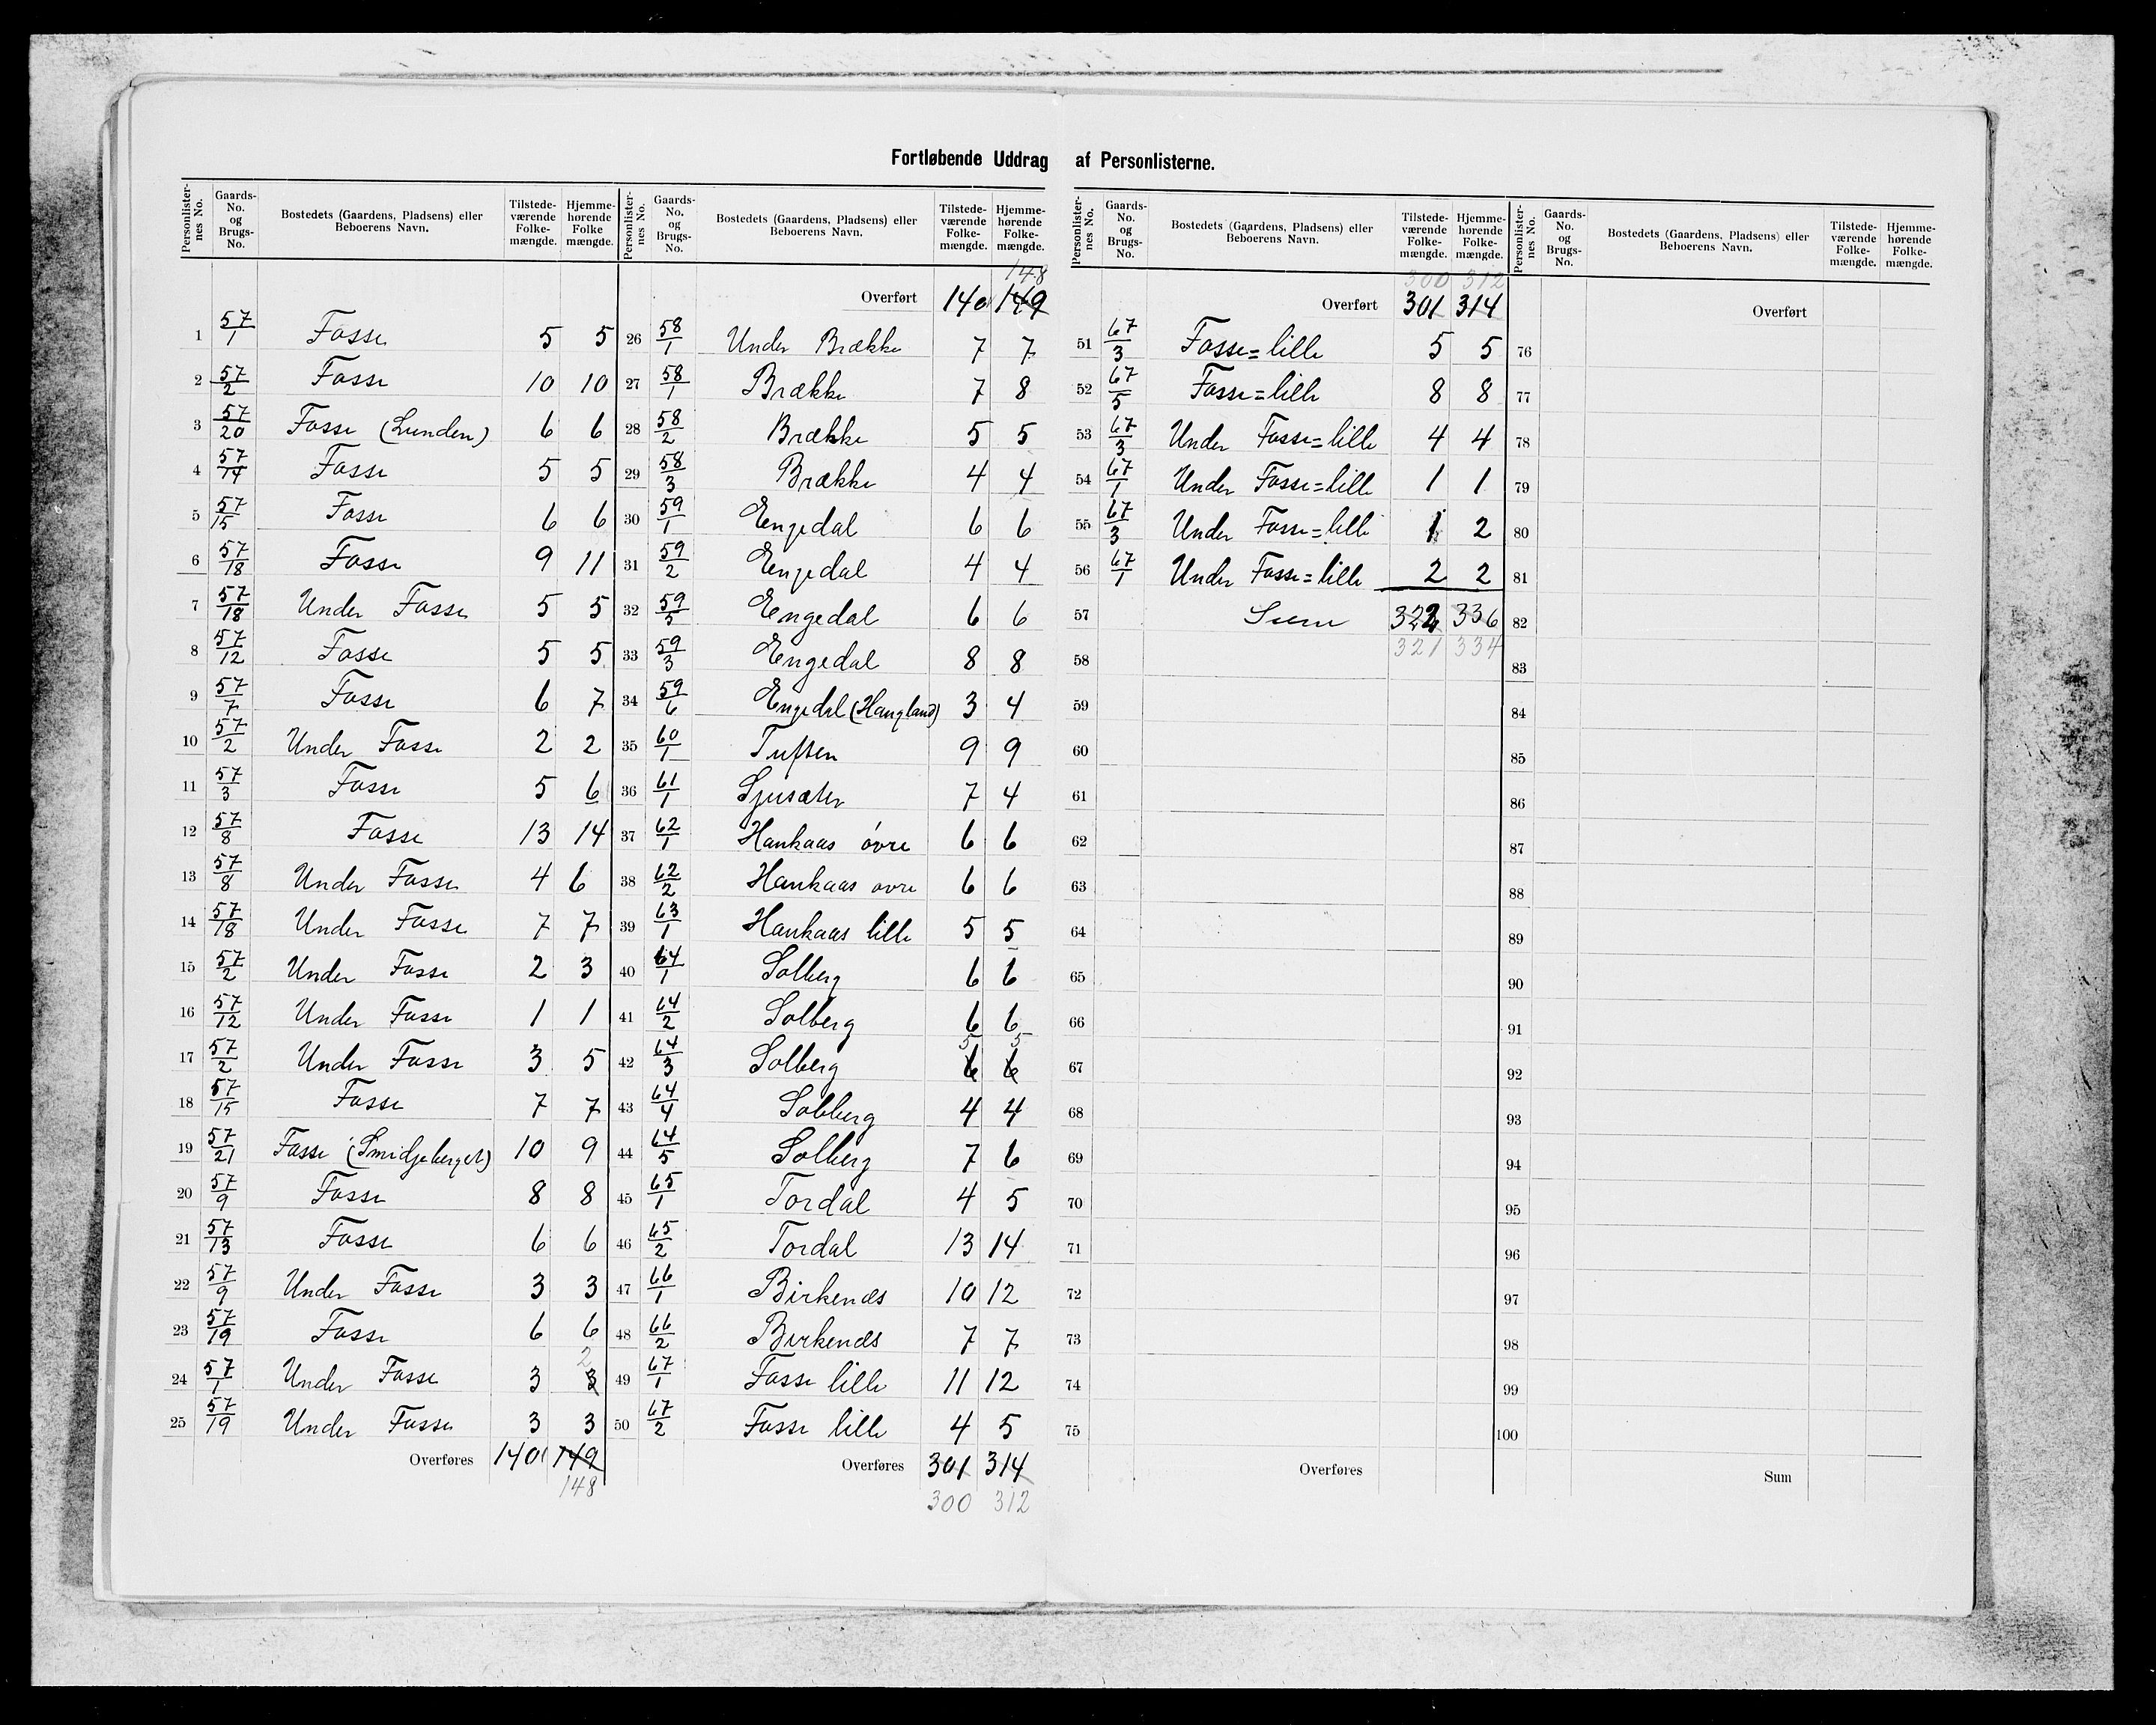 Fortløbende Uddrag af Personlisterne.
Personlisternes No. Gaards-No. og Brugs-No. Bostedets (Gaardens, Pladsens) eller Beboerens Navn. Tilstedeværende Folkemængde. Hjemmehørende Folkemængde.
1 57/1 Fosse 5 5
2 57/2 Fosse 10 10
3 57/20 Fosse (Lunden) 6 6
4 57/14 Fosse 5 5
5 57/15 Fosse 6 6
6 57/18 Fosse 9 11
7 57/18 Under Fosse 5 5
8 57/12 Fosse 5 5
9 57/7 Fosse 6 7
10 57/2 Under Fosse 2 2
11 57/3 Fosse 5 6
12 57/8 Fosse 13 14
13 57/8 Under Fosse 4 6
14 57/18 Under Fosse 7 7
15 57/2 Under Fosse 2 3
16 57/12 Under Fosse 1 1
17 57/2 Under Fosse 3 5
18 57/15 Fosse 7 7
19 57/21 Fosse (Smidjeberget) 10 9
20 57/9 Fosse 8 8
21 57/13 Fosse 6 6
22 57/9 Under Fosse 3 3
23 57/19 Fosse 6 6
2
24 57/1 Under Fosse 3 3
25 57/19 Under Fosse 3 3
Overføres 140 149
148
Personlisternes No. Gaards-No. og Brugs-No. Bostedets (Gaardens, Pladsens) eller Beboerens Navn. Tilstedeværende Folkemængde. Hjemmehørende Folkemængde.
148
Overført 140 149
26 58/1 Under Brække 7 7
27 58/1 Brække 7 8
28 58/2 Brække 5 5
29 58/3 Brække 4 4
30 59/1 Engedal 6 6
31 59/2 Engedal 4 4
32 59/5 Engedal 6 6
33 59/3 Engedal 8 8
34 59/6 Engedal (Haugland) 3 4
35 60/1 Tuften 9 9
36 61/1 Sjusæter 7 4
37 62/1 Haukaas övre 6 6
38 62/2 Haukaas ovre 6 6
39 63/1 Haukaas lille 5 5
40 64/1 Solberg 6 6
41 64/2 Solberg 6 6
5 5
42 64/3 Solberg 6 6
43 64/4 Solberg 4 4
44 64/5 Solberg 7 6
45 65/1 Tordal 4 5
46 65/2 Tordal 13 14
47 66/1 Birkenæs 10 12
48 66/2 Birkenæs 7 7
49 67/1 Fosse lille 11 12
50 67/2 Fosse lille 4 5
Overføres 301 314
300 312
Personlisternes No. Gaards-No. og Brugs-No. Bostedets (Gaardens, Pladsens) eller Beboerens Navn. Tilstedeværende Folkemængde. Hjemmehørende Folkemængde.
300 312
Overført 301 314
51 67/3 Fosse=lille 5 5
52 67/5 Fosse=lille 8 8
53 67/3 Under Fosse=lille 4 4
54 67/1 Under Fosse=lille 1 1
55 67/3 Under Fosse=lille 1 2
56 67/1 Under Fosse=lille 2 2
57 Sum 322 336
58 321 334
59
60
61
62
63
64
65
66
67
68
69
70
71
72
73
74
75
Overføres
Personlisternes No. Gaards-No. og Brugs-No. Bostedets (Gaardens, Pladsens) eller Beboerens Navn. Tilstedeværende Folkemængde. Hjemmehørende Folkemængde.
Overført
76
77
78
79
80
81
82
83
84
85
86
87
88
89
90
91
92
93
94
95
96
97
98
99
100
Sum